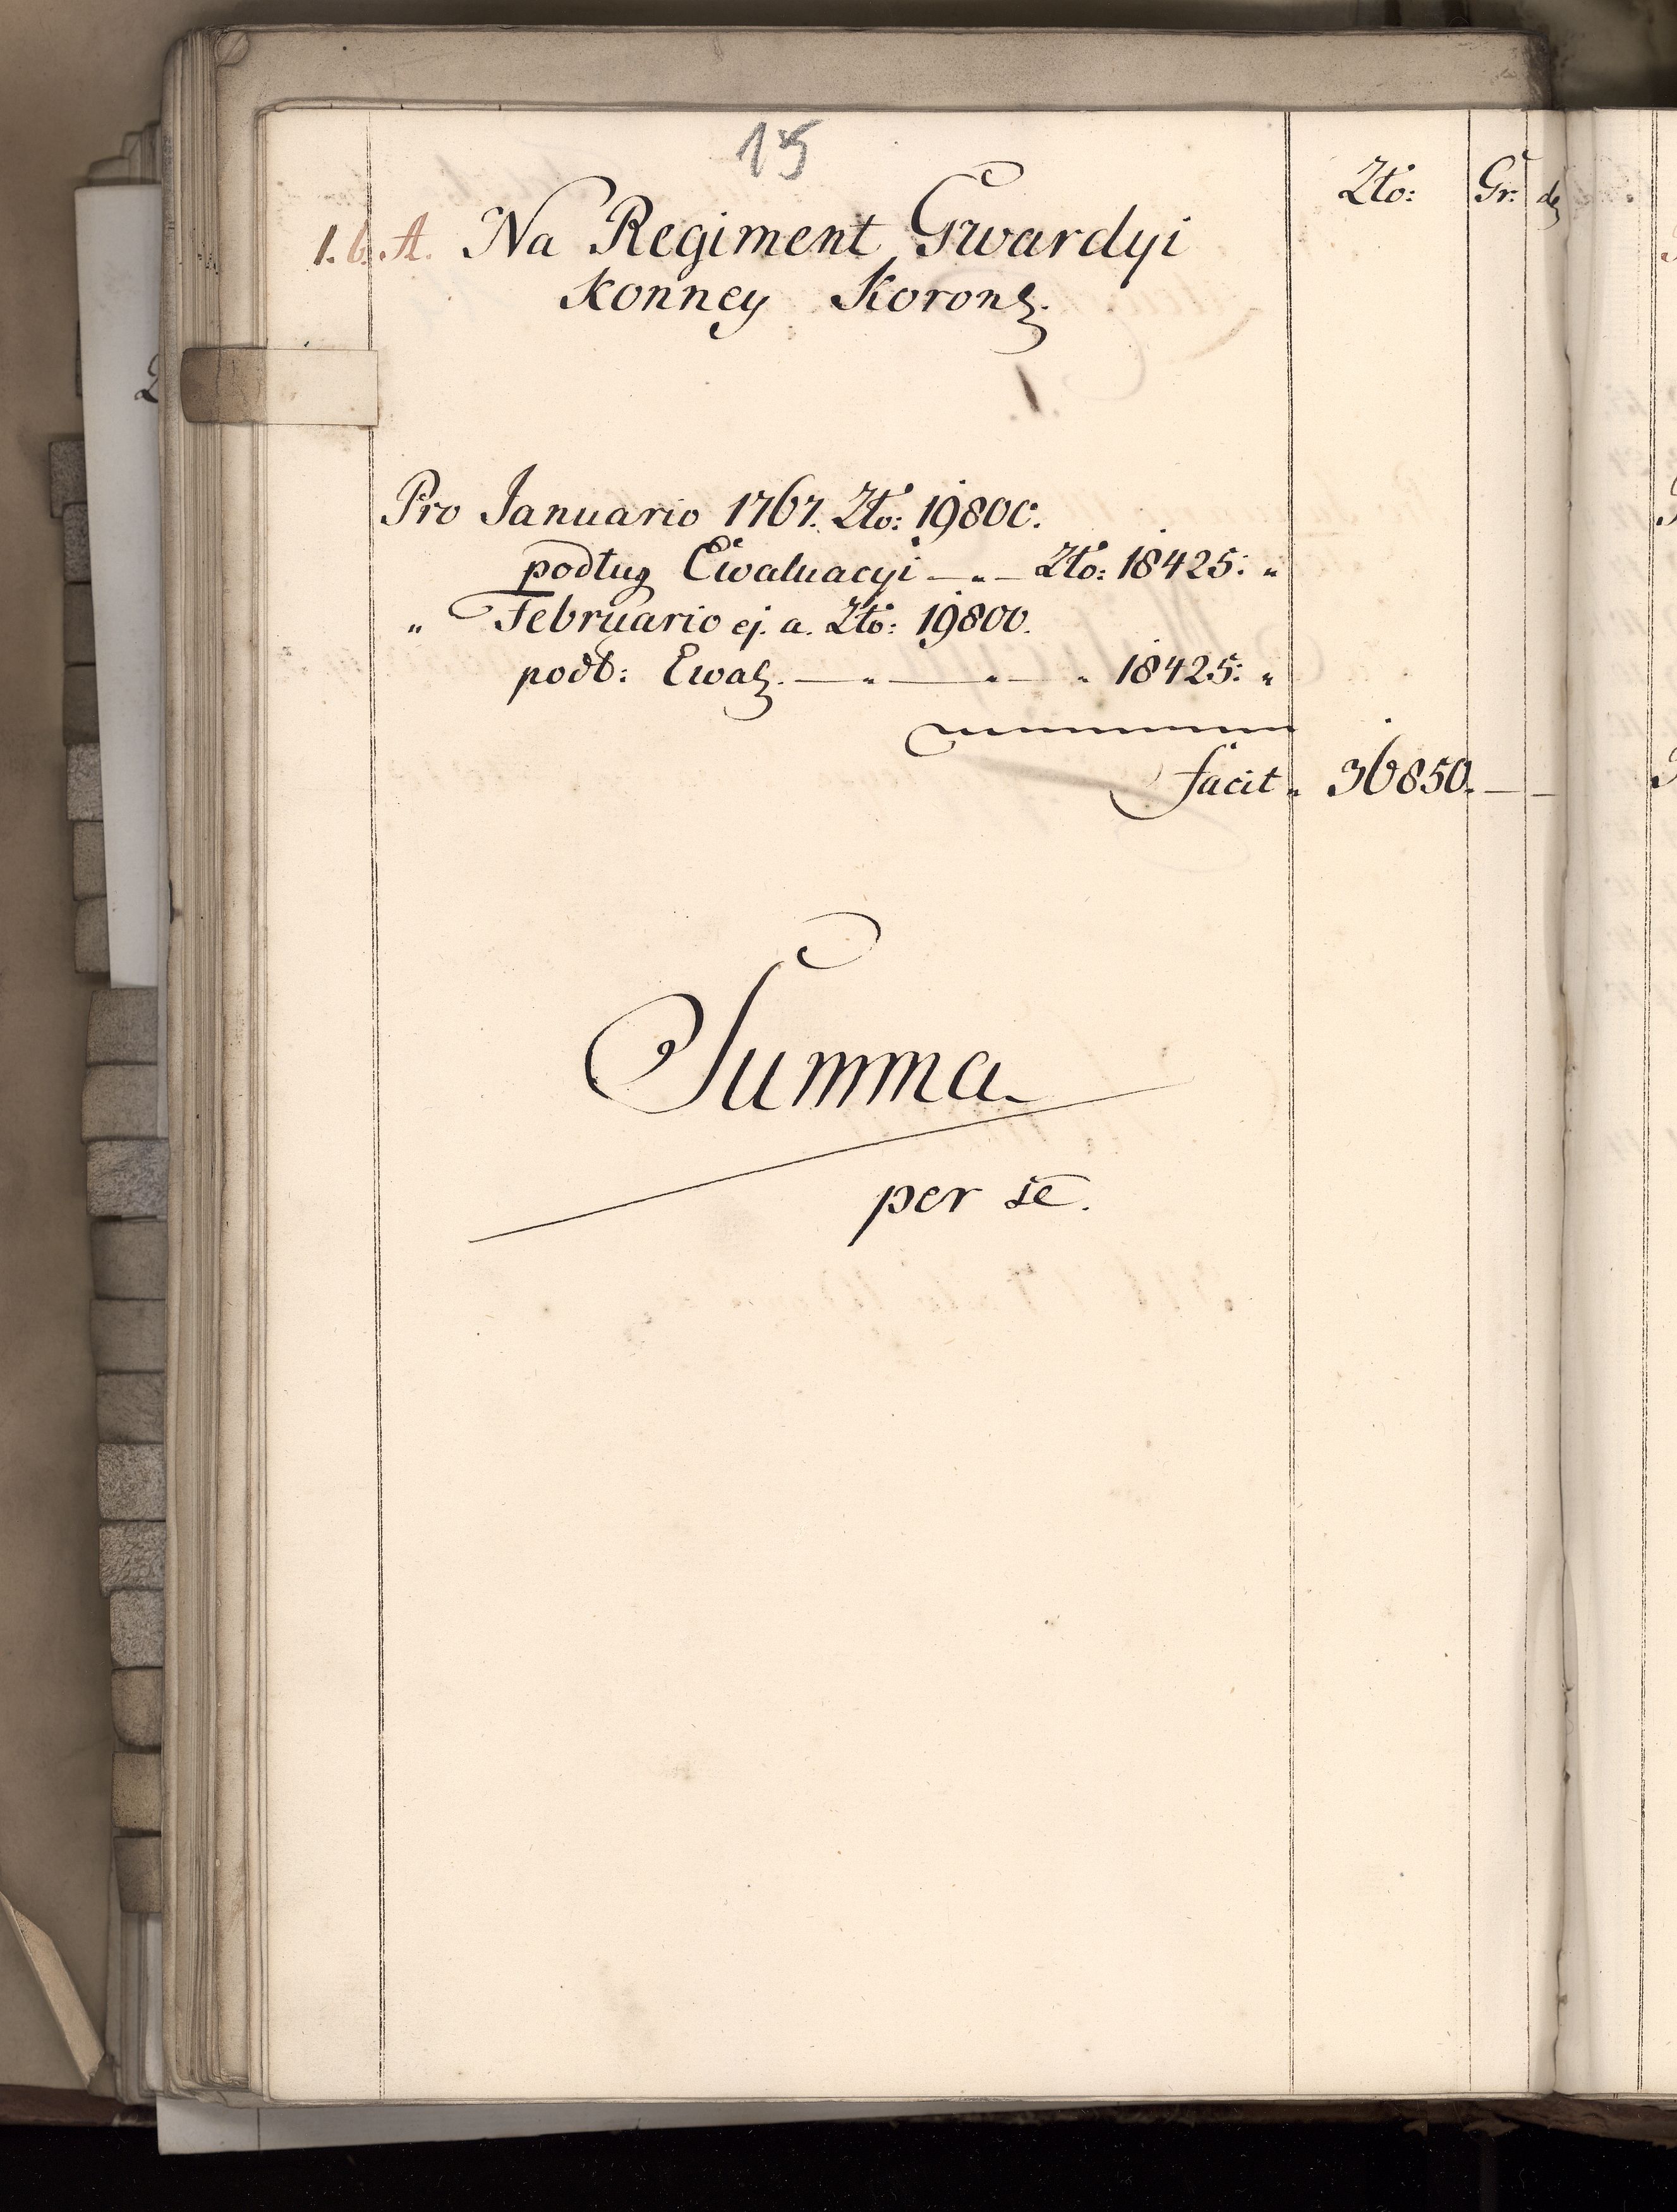 15
Zło: Gr: d
1. b. A. Na Regiment Gwardyi
Konney Koron.
1.
Pro Januario 1767. Zło: 19800.
podług Ewaluacyi — „ — Zło: 18425: „
„ Februario ej. a. Zło: 19800.
podł: Ewal. — „ — „ — „ 18425: „
facit „ 36850. — —
Summa
per se.